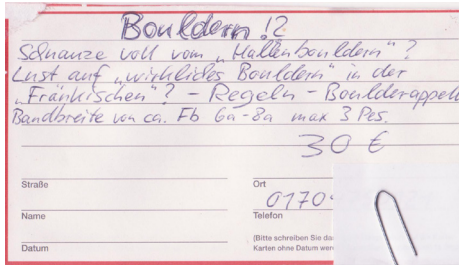 Bouldern!?
Schnauze voll vom „Hallenbouldern“?
Lust auf „wirkliches Bouldern“ in der
„Fränkischen“? - Regeln - Boulderappell
Bandbreite von ca. Fb 6a-8a max 3 Pes.
30 €
Straße
Ort
0170
Name
Telefon
(Bitte schreiben Sie
Datum
Karten ohne Datum